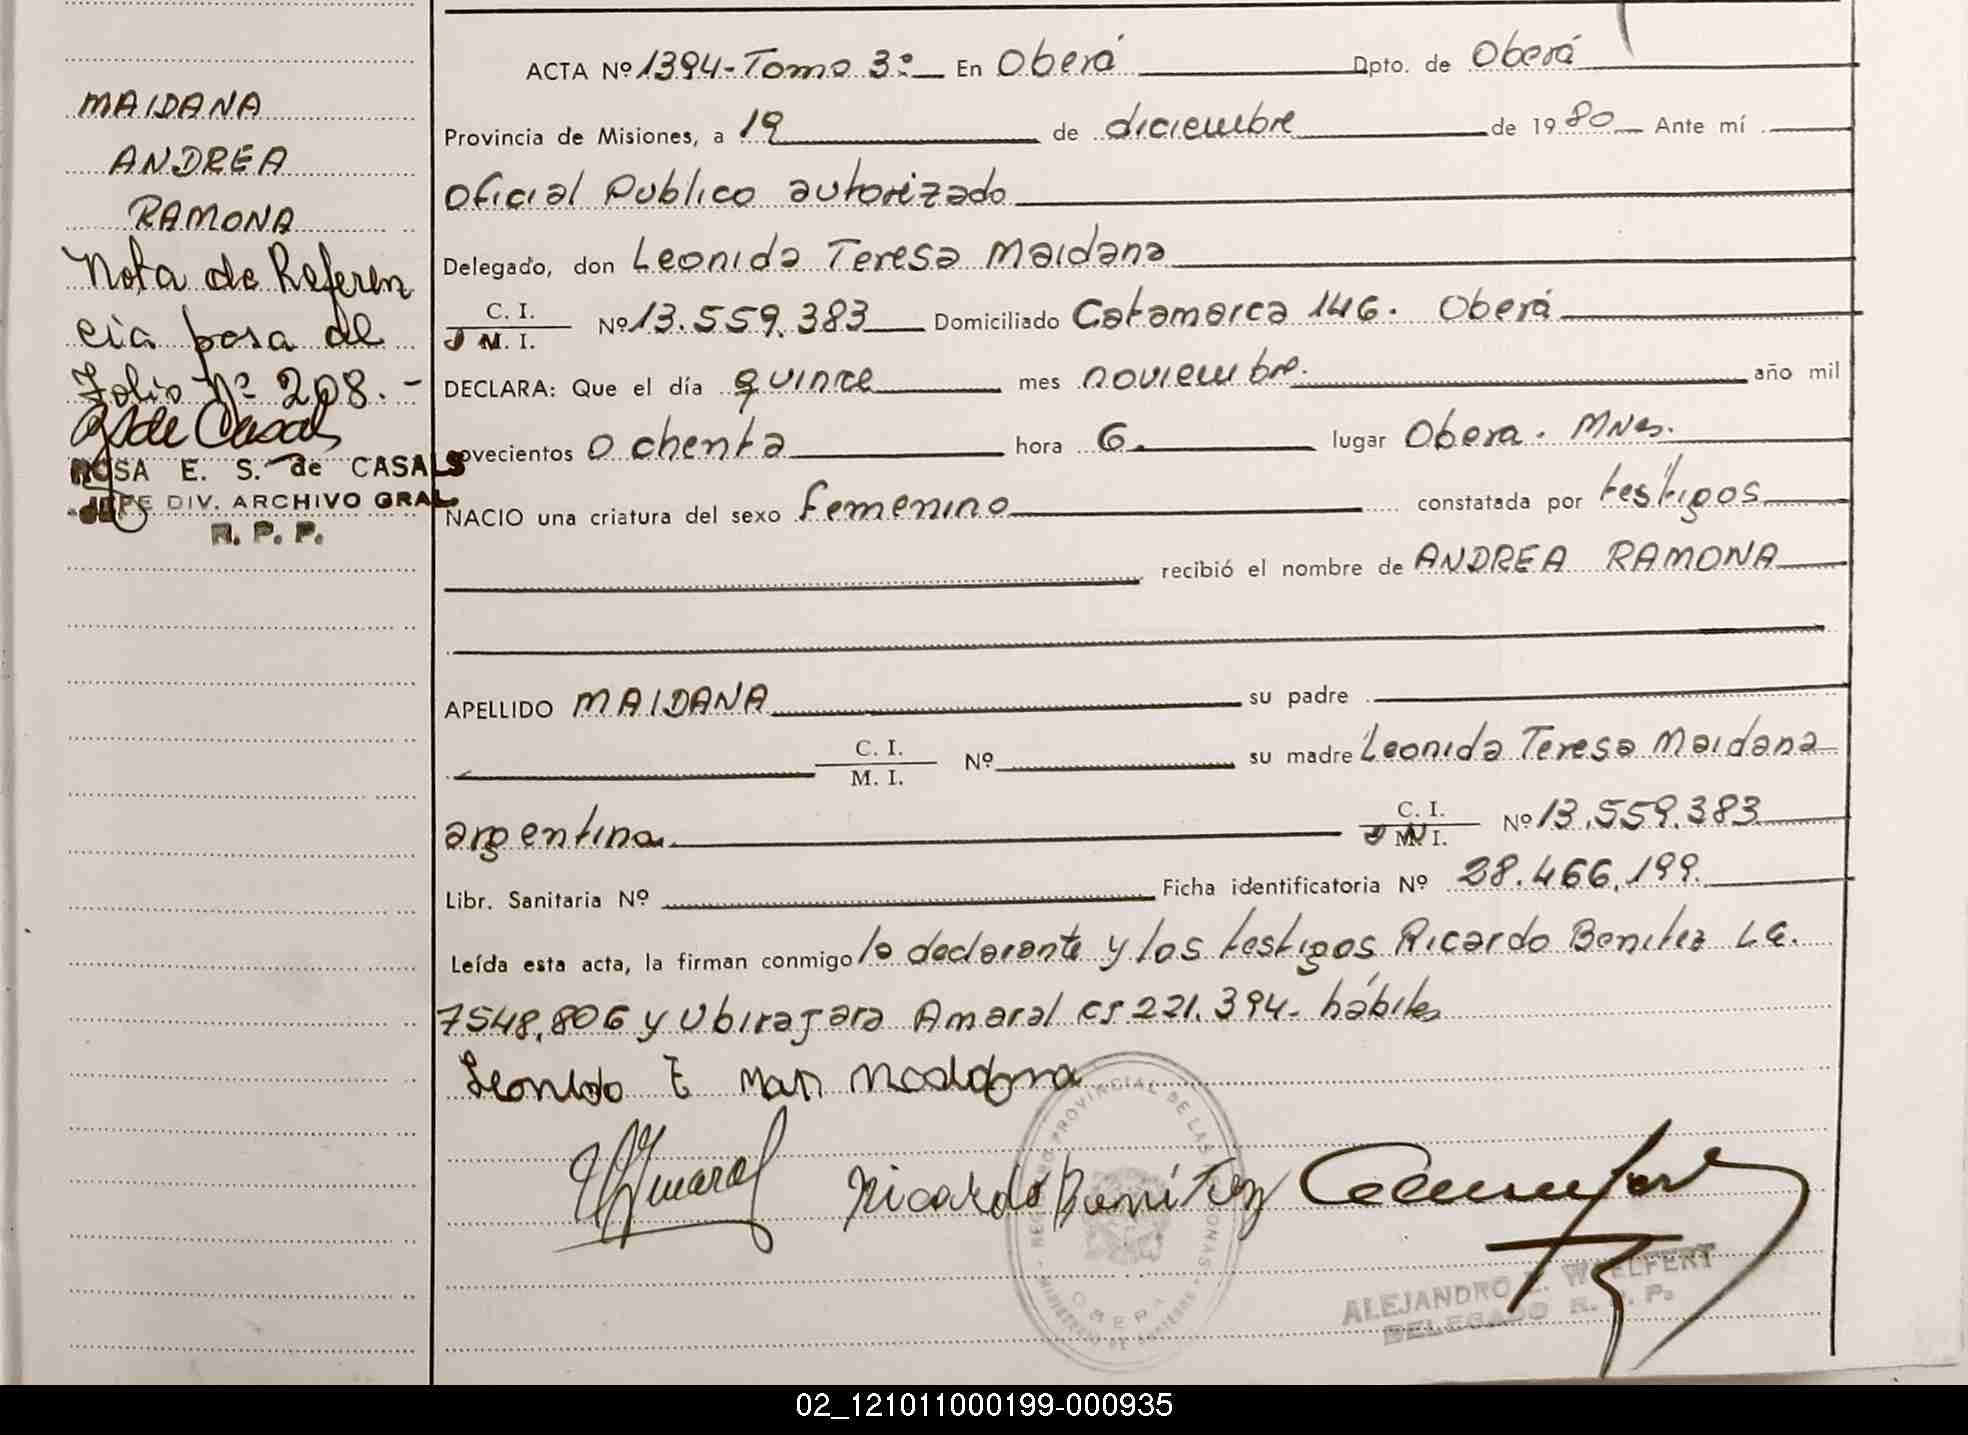 MAIDANA
ANDREA
RAMONA
Nota de Referen
cia pasa al
Folio Nº 208.-
ROSA E. S. de CASALS
JEFE DIV. ARCHIVO GRAL
R. P. P.
ACTA Nº 1394-Tomo 3º En Oberá Dpto. de Oberá
Provincia de Misiones, a 19 de diciembre de 1980 Ante mí
Oficial Publico autorizado
Delegado, don Leonida Teresa Maidana
C. I.
D M. I. Nº 13.559.383 Domiciliado Catamarca 146. Oberá
DECLARA: Que el día quince mes noviembre. año mil
novecientos ochenta hora 6. lugar Obera. Mnes.
NACIO una criatura del sexo femenino constatada por testigos
recibió el nombre de ANDREA RAMONA
APELLIDO MAIDANA su padre
C. I.
M. I. Nº su madre Leonida Teresa Maidana
argentina C. I.
D N I. Nº 13.559.383
Libr. Sanitaria Nº Ficha identificatoria Nº 28.466.199.
Leída esta acta, la firman conmigo la declarante y los testigos Ricardo Benitez L.E.
7548.806 y Ubirajara Amaral 221.394- hábiles
Amaral Ricardo Benítez
REGISTRO PROVINCIAL DE LAS PERSONAS
MINISTERIO DE GOBIERNO
OBERA
ALEJANDRO WELFERT
DELEGADO R. P. P.
02_121011000199-000935